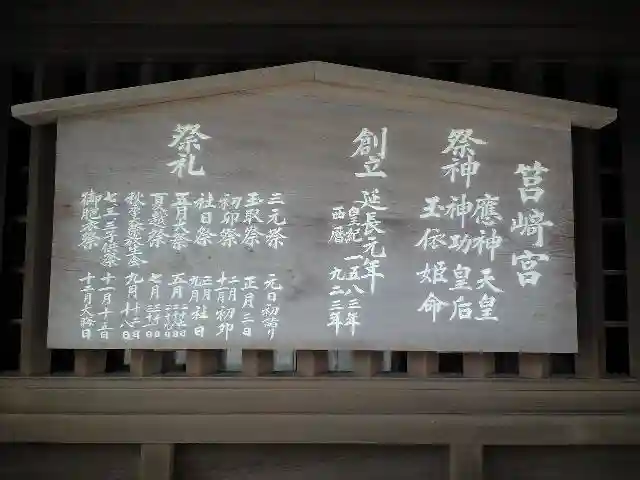 筥崎宮
祭神
應神天皇
神功皇后
玉依姫命
創立
延長元年
皇紀 一五八三年
西暦 九二三年
祭礼
三元祭 元日初詣り
玉取祭 正月三日
初卯祭 二月 十一月 初卯
社日祭 三月 九月 社日
五月大祭 五月
夏越祭 七月
秋季放生会 九月
七五三子供祭 十一月十五日
御胞衣祭 十二月大晦日